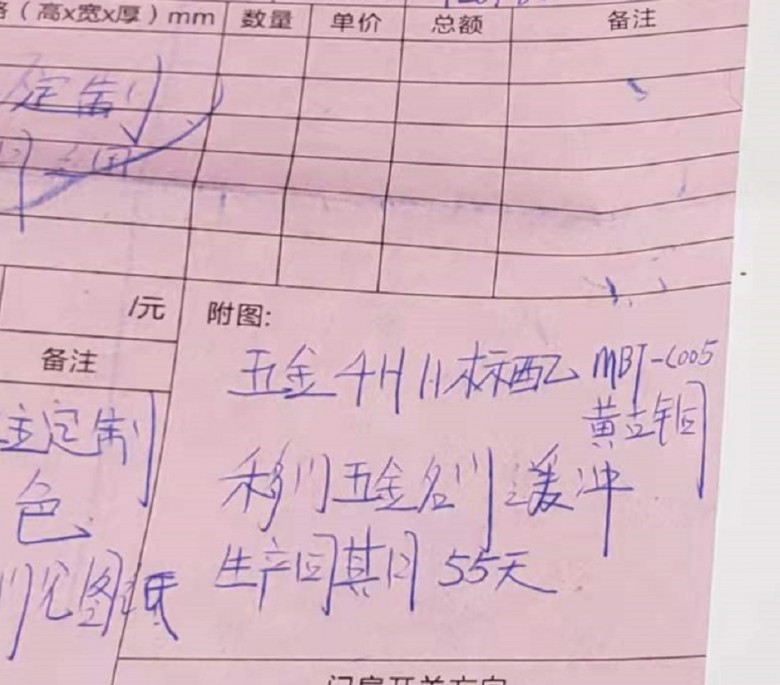 （高x宽x厚）mm 数量 单价 总额 备注
定制
/元 附图:
备注
五金 标配 MBJ-L005
黄古铜
定制
色
移门五金 缓冲
生产周期 55天
见图纸
门扇开关方向